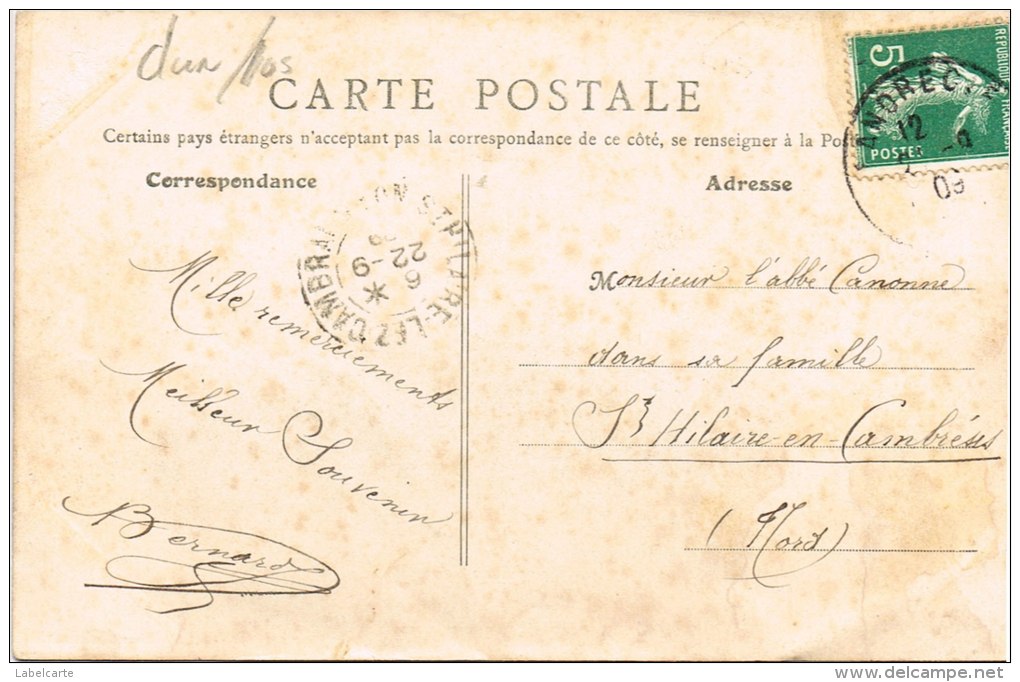 dun/bos
CARTE POSTALE
Certains pays étrangers n'acceptent pas la correspondance de ce côté, se renseigner à la Poste
Correspondance
Adresse
5
REPUBLIQUE FRANÇAISE
POSTES
LANDRECIES
12
09
ST HILAIRE-LEZ-CAMBRAI
22
9
6
Mille remerciements
Meilleur Souvenir
Bernard
Monsieur l'abbé Canonne
dans sa famille
St Hilaire-en-Cambrésis
(Nord)
Labelcarte
www.delcampe.net